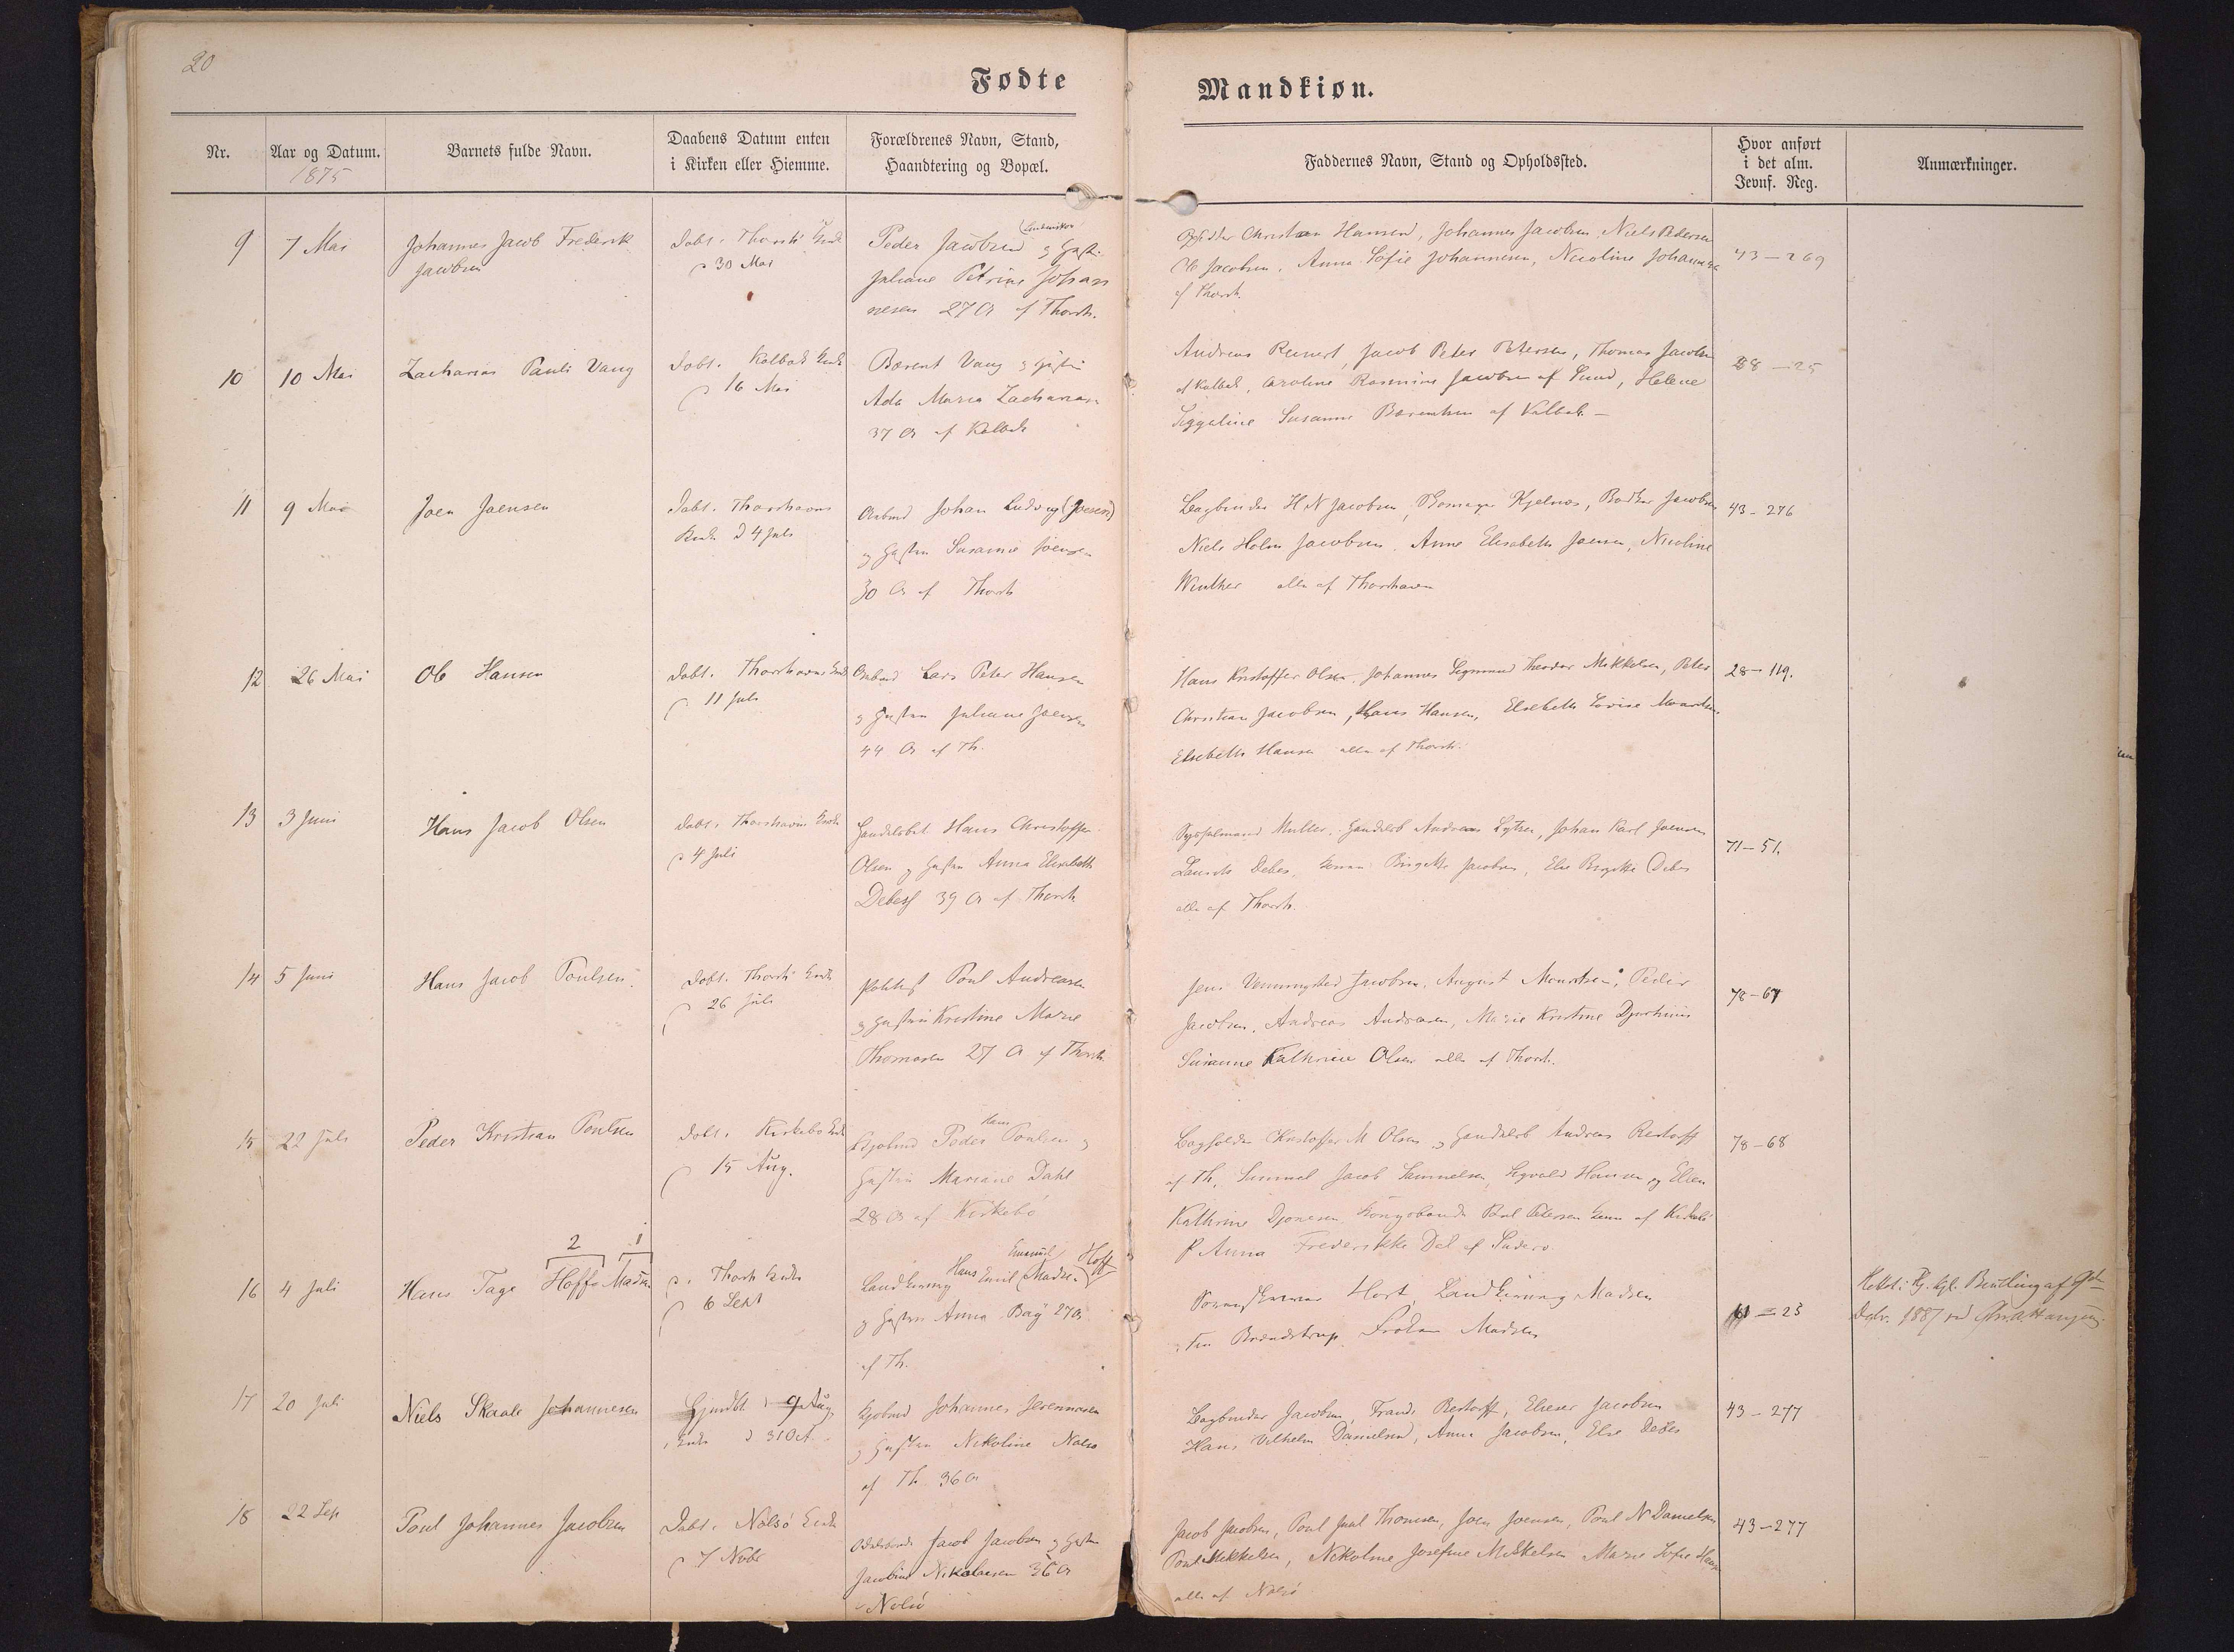 20
Fødte
Mandkiøn.
Nr.
Aar og Datum.
1875
Barnets fulde Navn.
Daabens Datum enten
i Kirken eller Hiemme.
Forældrenes Navn, Stand,
Haandtering og Bopæl.
Faddernes Navn, Stand og Opholdssted.
Hvor anført
i det alm.
Jevnf. Reg.
Anmærkninger.
9
7 Mai
Johannes Jacob Frederik
Jacobsen
Døbt i Thorsh Kirke
30 Mai
Peder Jacobsen
Juliane Petrine Johan
nesen 27 A af Thorsh.
Christian Hansen, Johannes Jacobsen, Niels Pedersen
Jacobsen, Anna Sofie Johannesen, Nicoline Johannesen
af Thorsh.
43-269
10
10 Mai
Zacharias Pauli Vang
Døbt i Kalbak Kirke
16 Mai
Barent Vang og Hustru
Ada Maria Zachariasen
37 A af Kalbak
Andreas Reinert, Jacob Peter Petersen, Thomas Jacobsen
af Kalbak, Caroline Rasmine Jacobsen af Sund, Helene
Susanne Barentsen af Kalbak
88-25
11
9 Mai
Joen Joensen
Døbt i Thorshavns
Kirke D 4 Juli
Arbmd Johan Ludvig (Joensen)
og Hustru Susanne Joensen
30 A af Thorsh
Bogbinder H N Jacobsen, Kjelnæs, Bødker Jacobsen
Niels Holm Jacobsen, Anne Elisabeth Joensen, Nicoline
Winther alle af Thorshavn
43-276
12
26 Mai
Ole Hansen
Døbt i Thorshavns Kirke
11 Juli
Arbmd Lars Peter Hansen
og Hustru Juliane Joensen
44 A af Th.
Hans Kristoffer Olsen, Johannes Sigmund Theodor Mikkelsen, Peter
Christian Jacobsen, Hans Hansen, Elsebeth Lovise
Elsebeth Hansen alle af Thorsh.
28-119.
13
3 Juni
Hans Jacob Olsen
Døbt i Thorshavns Kirke
4 Juli
Handelsbet Hans Christoffer
Olsen og Hustru Anna Elisabeth
Debess 39 A af Thorsh
Sysselmand Müller, Handelsb Andreas Lützen, Johan Karl Joensen
Laurits Debes, Birgitte Jacobsen, Else Birgitte Debes
alle af Thorsh.
71-51.
14
5 Juni
Hans Jacob Poulsen
Døbt i Thorsh Kirke
26 Juli
Poul Andreasen
og Hustru Kristine Marie
Thomasen 27 A af Thorsh
Jens Venningsted Jacobsen, August Mouritsen, Peder
Jacobsen, Andreas Andreasen, Marie Kristine Djurhuus
Susanne Kathrine Olsen alle af Thorsh.
78-67
15
22 Juli
Peder Kristian Poulsen
Døbt i Kirkebø Kirke
15 Aug.
Hans
Peder Poulsen og
Hustru Mariane Dahl
28 A af Kirkebø
Bogholder Kristoffer M Olsen og Handelsb Andreas Restorff
af Th, Samuel Jacob Samuelsen, Sigvald Hansen og Ellen
Kathrine Djonesen, Kongsbonde Poul Petersen af Kirkebø
P Anna Frederikke Dal af Suderø.
78-68
16
4 Juli
2 1
Hans Tage Hoffo Madsen
i Thorsh Kirke
6 Sept
Emanuel Hoff
Landkirurg Hans Emil Madsen
og Hustru Anna Bay 27 A
af Th.
Hort, Landkirurg Madsen
Fru Brændstrup, Frøken Madsen
61-23
1887
17
20 Juli
Niels Skaale Johannesen
Hjmdbt 9 Aug
Kirke D 31 Oct
Johannes Jeremiasen
og Hustru Nikoline Nolsø
af Th 36 A
Bogbinder Jacobsen, Frands Restorff, Elieser Jacobsen
Hans Vilhelm Danielsen, Anna Jacobsen, Else Debes
43-277
18
22 Sep
Poul Johannes Jacobsen
Døbt i Nolsø Kirke
7 Novbr
Odelsbonde Jacob Jacobsen og Hustru
Jacobine Nikolaisen 36 A
Nolsø
Jacob Jacobsen, Poul Juul Thomsen, Joen Joensen, Poul N Danielsen
Poul Mikkelsen, Nikoline Josefine Mikkelsen Marie Sofie
alle af Nolsø
43-277